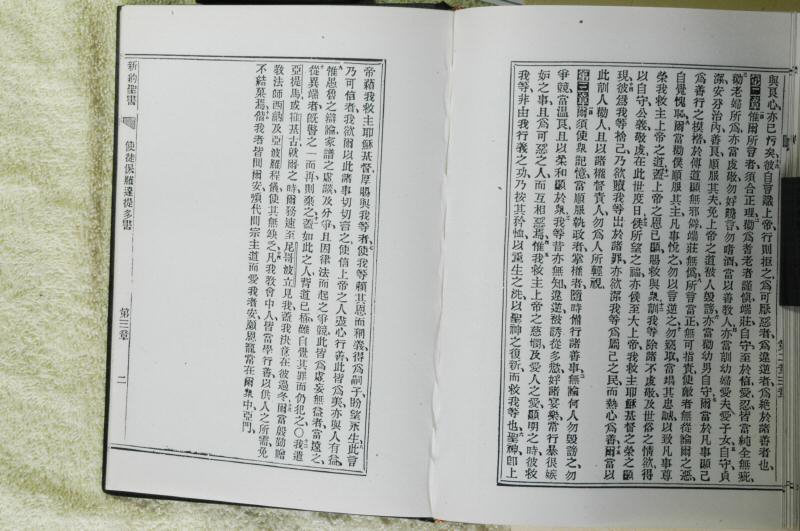 與良心、亦已污矣、彼自言識上帝、行則拒之、爲可厭惡者、爲違逆者、爲絶於諸善者也、
第二章 惟爾所言者、須合正理、勸爲善、老者謹愼端莊自守、至於信愛忍皆當純全無疵、
勸老婦所爲亦當虔敬、勿好譭言、勿嗜酒、當以善教人、亦當訓幼婦愛夫愛子女、自守貞
潔、安分治內、善良、順服其夫、免上帝之道被人毀謗、亦當勸幼男自守、爾當於凡事顯己
爲善行之模楷、於傳道顯無邪僻、端莊無僞、所言當正、無可指責、使敵者無從論爾之惡、
自覺愧恥、爾當勸僕順服其主、凡事悅之、勿以言逆之、勿竊取、當竭其忠誠、以致凡事尊
榮我救主上帝之道、蓋上帝之恩已顯、賜救與衆、訓我等除諸不虔敬及世俗之情欲、得
以自守公義敬虔、在此世度日、俟所望之福、亦俟至大上帝我救主耶穌基督之榮之顯
現、彼爲我等捨己、乃欲贖我等出於諸罪、亦欲潔我等爲屬己之民、而熱心爲善、爾當以
此訓人勸人、且以諸權督責人、勿爲人所輕視、
第三章 爾須使衆記憶、當順服執政者掌權者、隨時備行諸善事、無論何人勿毀謗之、勿
爭競、當溫良、且以柔和顯於衆、我等昔亦無知違逆、被誘、從多慾、好諸宴樂、常行暴很嫉
妒之事、且爲可惡之人、而互相惡焉、惟我救主上帝之慈憫、及愛人之愛顯明之時、彼救
我等、非由我行義之功、乃按其矜恤、以重生之洗、以聖神之復新、而救我等也、聖神卽上
第二章三章
帝藉我救主耶穌基督厚賜與我等者、使我等賴其恩而稱義、得爲嗣子、盼望永生、此言
乃可信者、我欲爾以此諸事切切言之、使信上帝之人盡心行善、此皆爲美、亦與人有益、
惟愚魯之辯論、家譜之虛談、及分爭、且因律法而起之爭競、此皆爲虛妄無益者、當遠之、
從異端者、旣警之一而再、則棄之、蓋如此之人、背道已極、雖自覺其罪而仍犯之、〇我遣
亞提馬或推基古就爾之時、爾務速至尼哥波立見我、蓋我決意在彼過冬、爾當殷勤贍
教法師西納及亞波羅程儀、使其無缺乏、凡我教會中人、皆當學行善、以供人之所需、免
不結菓焉、偕我者皆問爾安、煩代問宗主道而愛我者安、願恩寵常在爾衆中、亞門、
新約聖書 使徒保羅達提多書 第三章 二